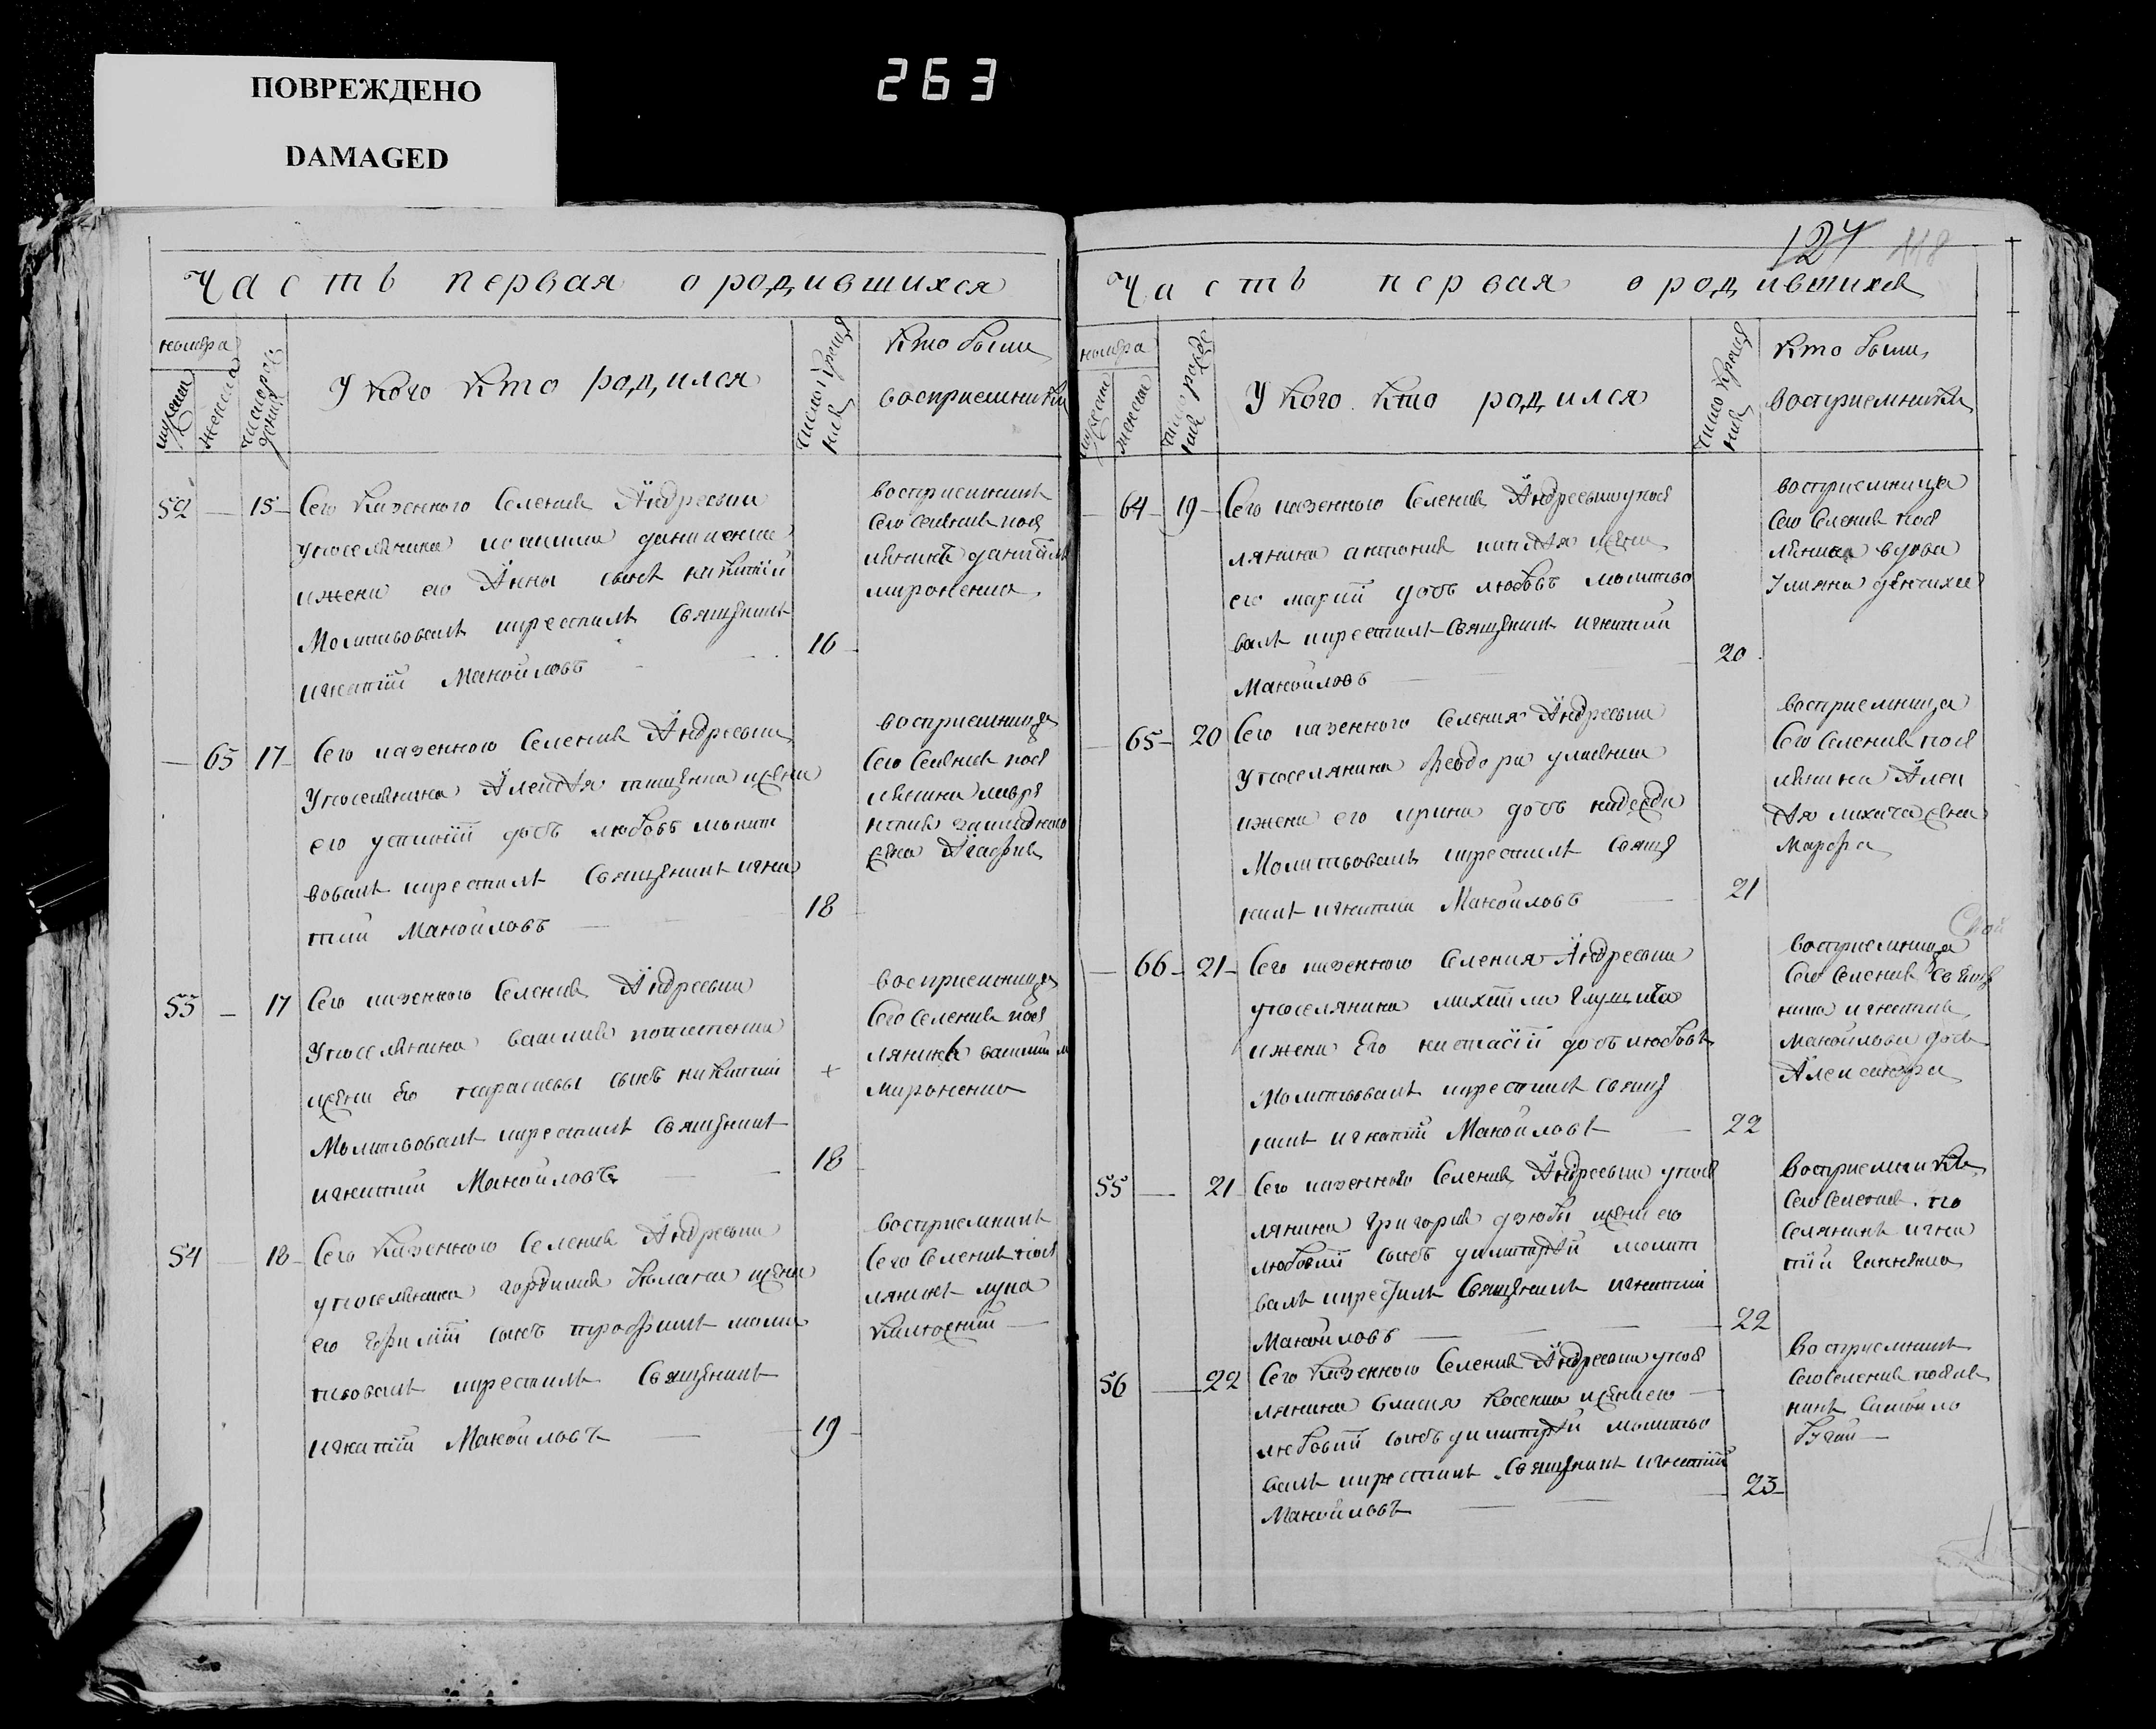 ПОВРЕЖДЕНО
DAMAGED
263
Часть первая о родившихся
номера
мужеска
женска
число рождения
У кого кто родился
число крещения
кто были
восприемники
52 — 15 Сего казенного Селения Андреевки
упоселянина
и жены его Анны сынъ никитий
Молитвовалъ икрестилъ Священикъ
игнатий Манойловъ
16
восприемникъ
сего селения посе
лянинъ даниилъ
мироненко
— 65 17 Сего казенного Селения Андреевки
Упоселянина Алексея тищенка ижены
его устинiи дочь любовь молит
вовалъ икрестилъ Священикъ игна
тий Манойловъ
18
восприемница
Сего Селения посе
лянина лавре
нтия
жена Агафия
53 — 17 Сего казенного Селения Андреевки
Упоселянина василия
ижены его парасковы сынъ никитий
Молитвовалъ икрестилъ Священикъ
игнатий Манойловъ
+
18
восприемница
Сего Селения посе
лянинъ василий
мироненко
54 — 18 Сего Казенного Селения Андреевки
упоселянина гордия ижены
его сынъ трофимъ моли
твовалъ икрестилъ Священикъ
игнатий Манойловъ
19
восприемникъ
Сего Селения посе
лянинъ лука
127 118
Часть первая о родившихся
номера
мужеска
женска
число рождения
У кого кто родился
число крещения
кто были
восприемники
— 64 19 Сего казенного Селения Андреевки упосе
лянина антония ижены
его марiи дочь любовь молитво
валъ икрестилъ Священикъ игнатий
Манойловъ
20
восприемница
Сего Селения посе
лянка вдова
— 65 20 Сего казенного Селения Андреевки
Упоселянина феодора
ижены его ирины дочь надежда
Молитвовалъ икрестилъ Свяще
никъ игнатий Манойловъ
21
восприемница
Сего Селения посе
лянина Алек
сея жена
Марфа
— 66 21 Сего казенного Селения Андреевки
упоселянина михаила
ижены Его настасiи дочь любовь
Молитвовалъ икрестилъ Свяще
никъ игнатий Манойловъ
22
восприемница
Сего Селения Священ
ника игнатия
манойлова дочь
Александра
55 — 21 Сего казенного Селения Андреевки упосе
лянина Григория дзюбы ижены его
любовiи сынъ димитрий молитво
валъ икрестилъ Священикъ игнатий
Манойловъ
22
Восприемники
Сего Селения по
селянинъ игна
тий
56 — 22 Сего Казенного Селения Андреевки упосе
лянина власия Косенка ижены его
любовiи сынъ димитрий молитво
валъ икрестилъ Священикъ игнатий
Манойловъ
23
Восприемникъ
Сего Селения поселя
нинъ Самойло
Бугай